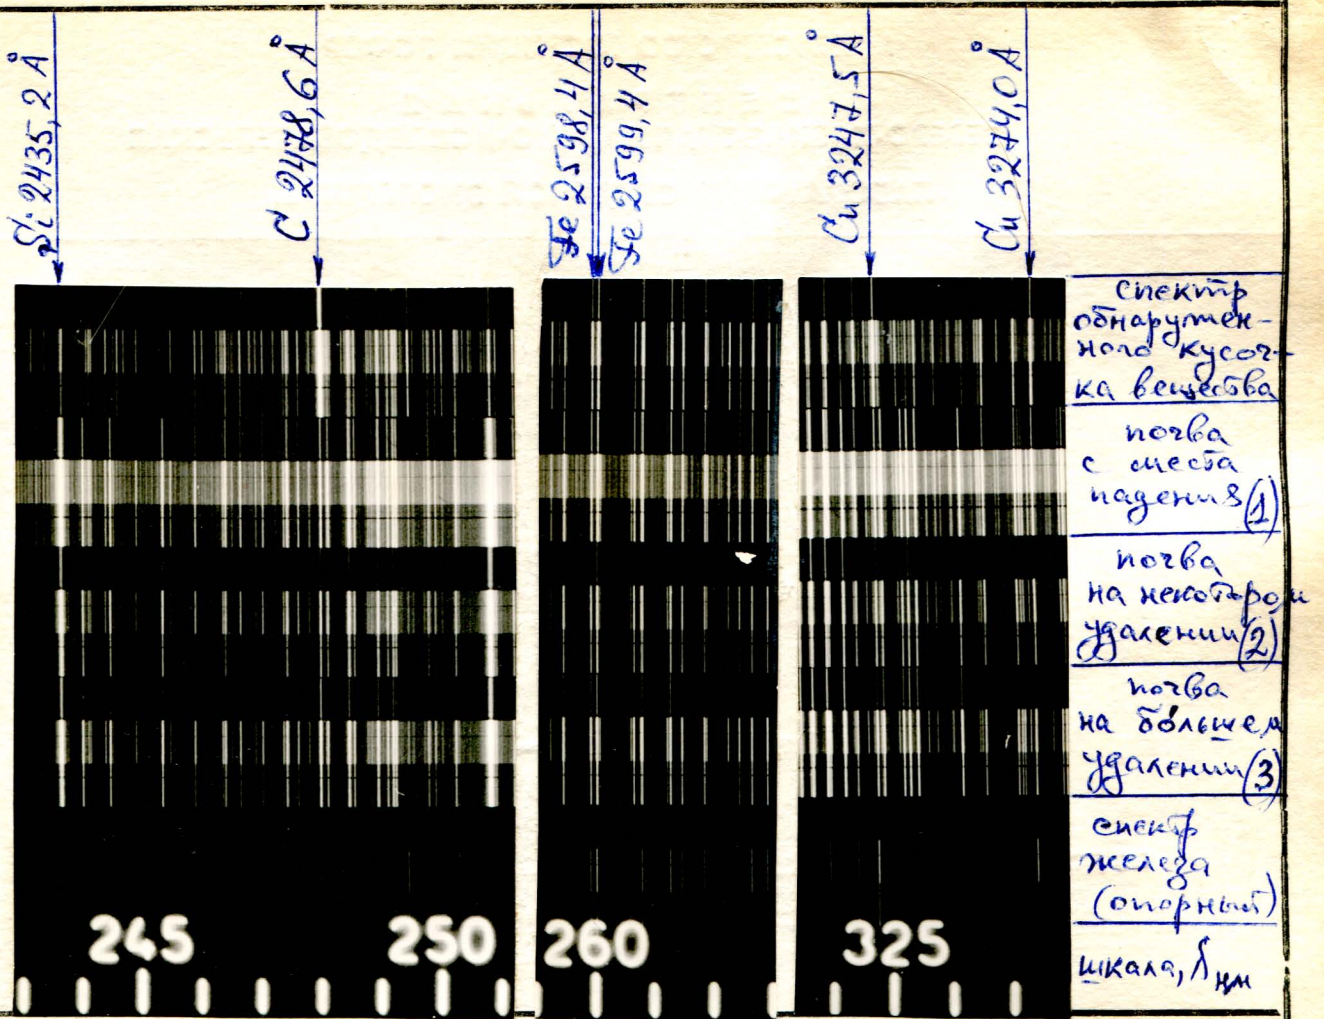 Si 2435,2 Å
C 2478,6 Å
Fe 2598,4 Å
Fe 2599,4 Å
Cu 3247,5 Å
Cu 3274,0 Å
спектр
обнаружен-
ного кусоч-
ка вещества
почва
с места
падения (1)
почва
на некотором
удалении (2)
почва
на бо́льшем
удалении (3)
спектр
железа
(опорный)
245
250
260
325
шкала, λ нм